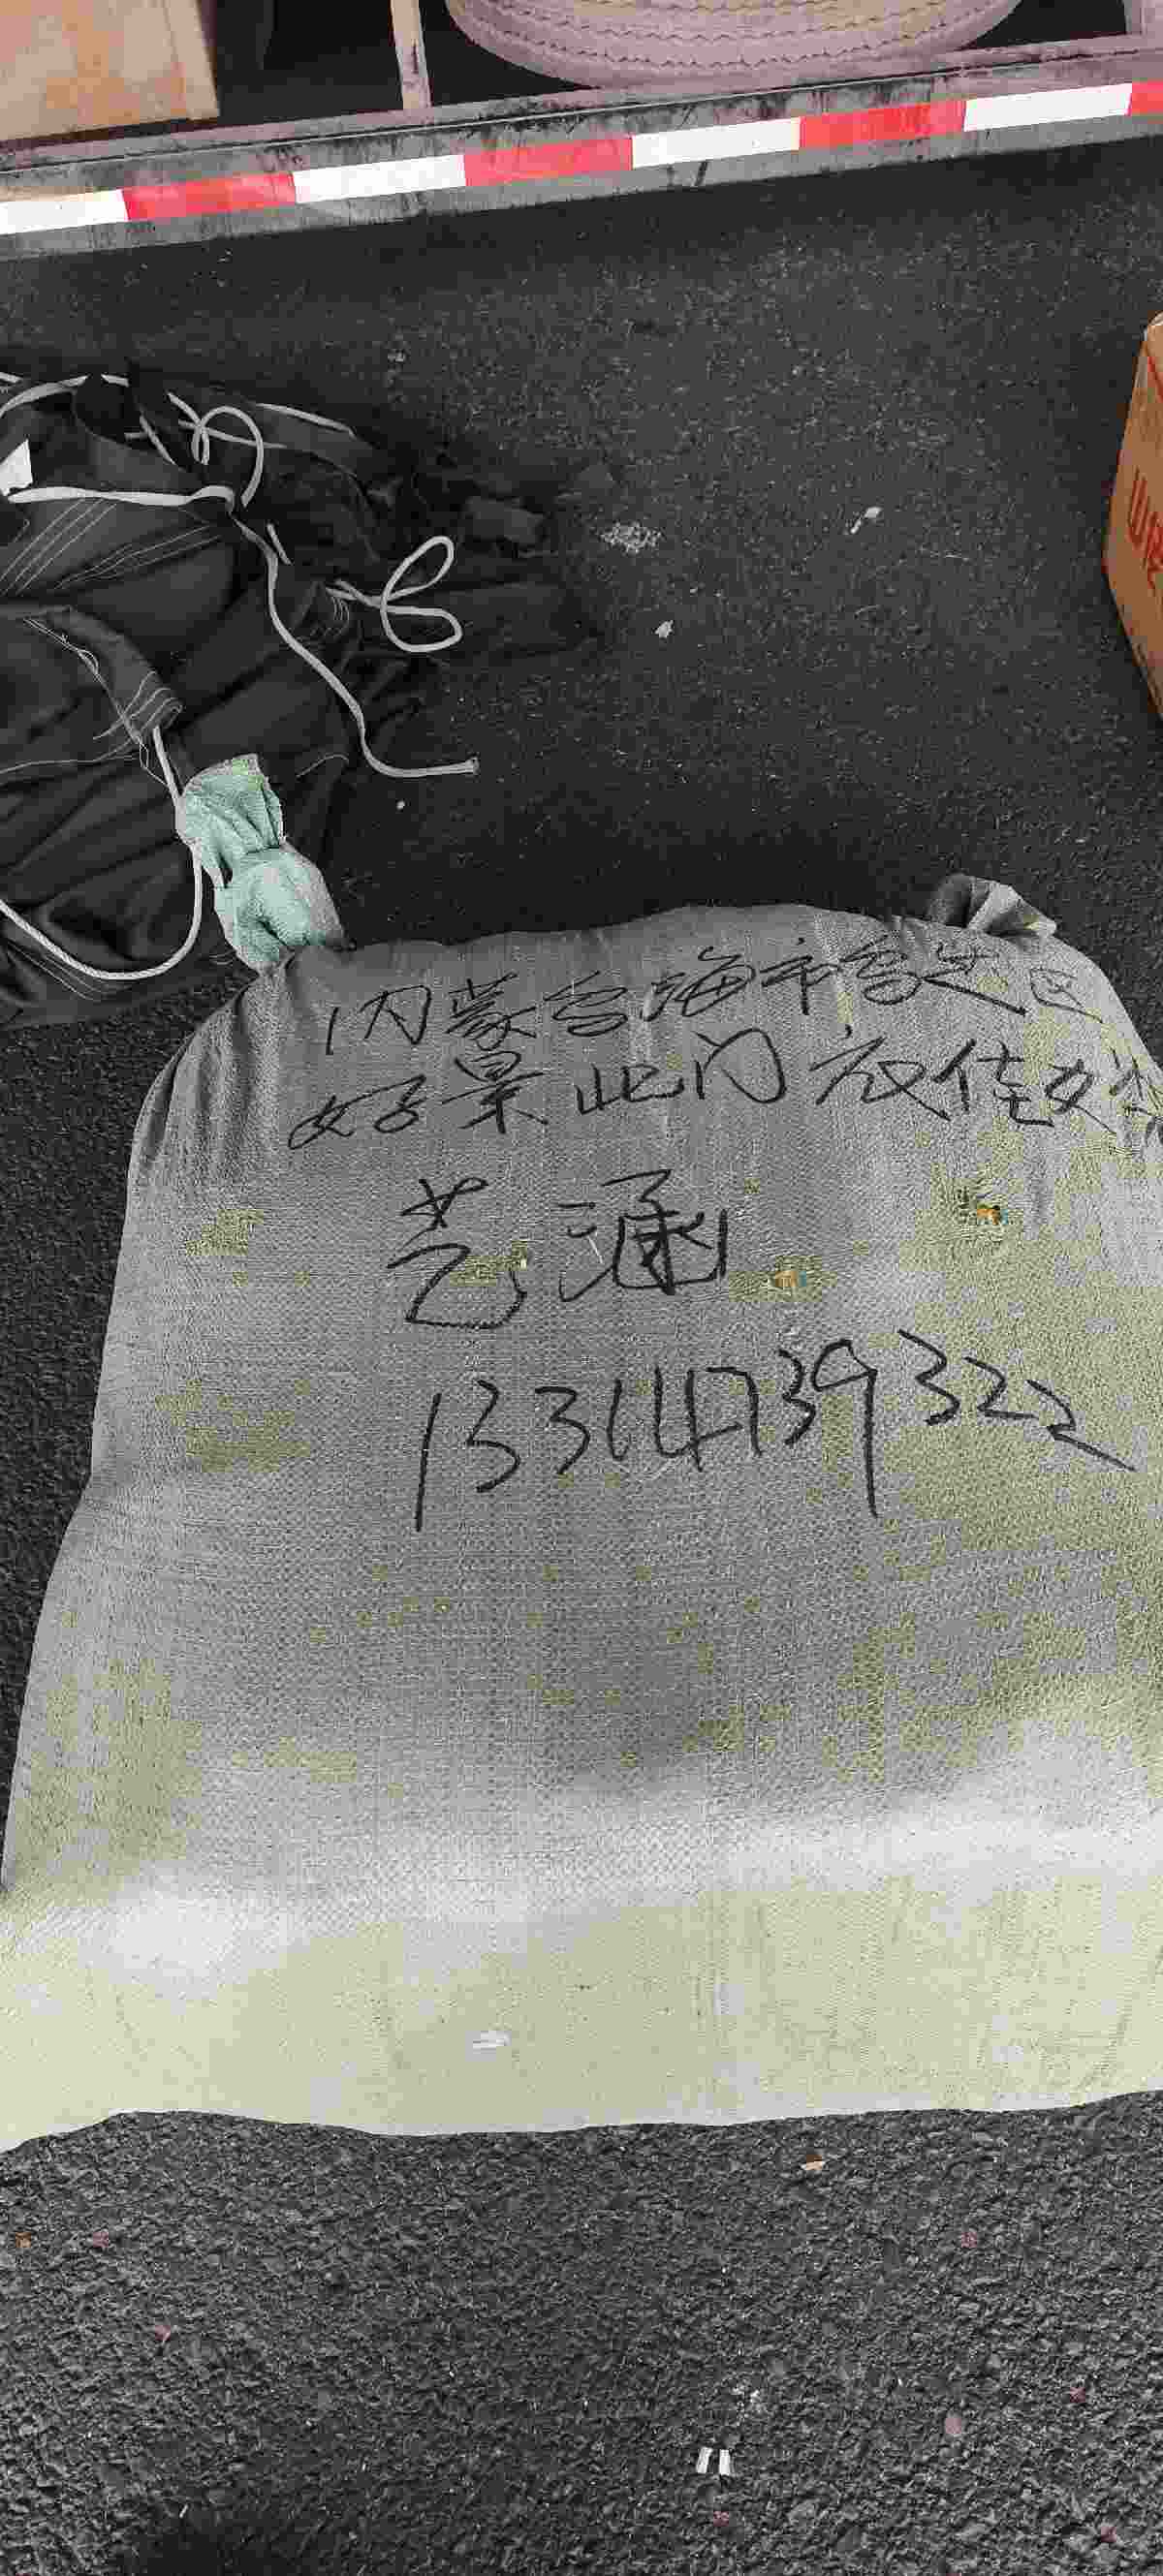 内蒙乌海市乌达区
好景北门衣佳女
艺涵
13314739322